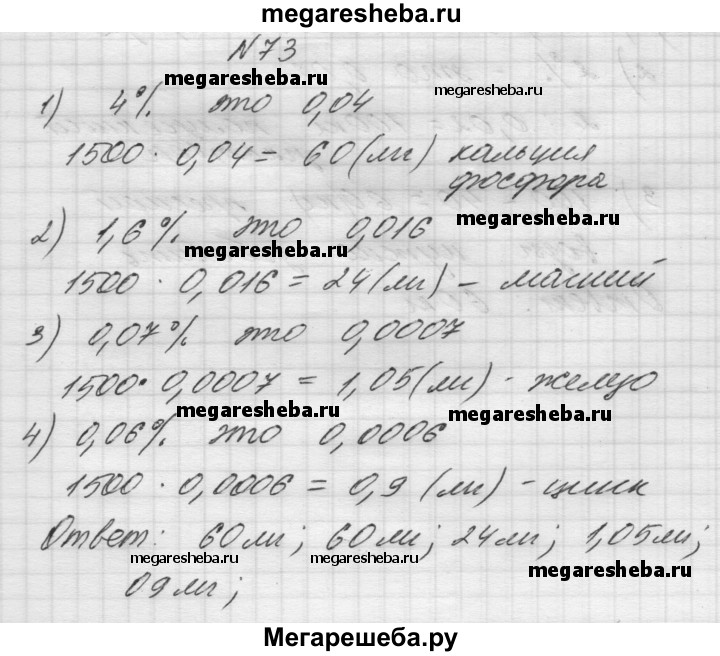 megaresheba.ru
N73
megaresheba.ru
megaresheba.ru
1) 4% это 0,04
1500 · 0,04 = 60 (мг) кальция
фосфора
2) 1,6% это 0,016
megaresheba.ru
megaresheba.ru
1500 · 0,016 = 24 (мг) – магний
3) 0,07% это 0,0007
1500 · 0,0007 = 1,05 (мг) - железо
megaresheba.ru
megaresheba.ru
4) 0,06% это 0,0006
1500 · 0,0006 = 0,9 (мг) - цинк
Ответ: 60 мг; 60 мг; 24 мг; 1,05 мг;
megaresheba.ru
megaresheba.ru
megaresheba.ru
09 мг;
Мегарешеба.ру